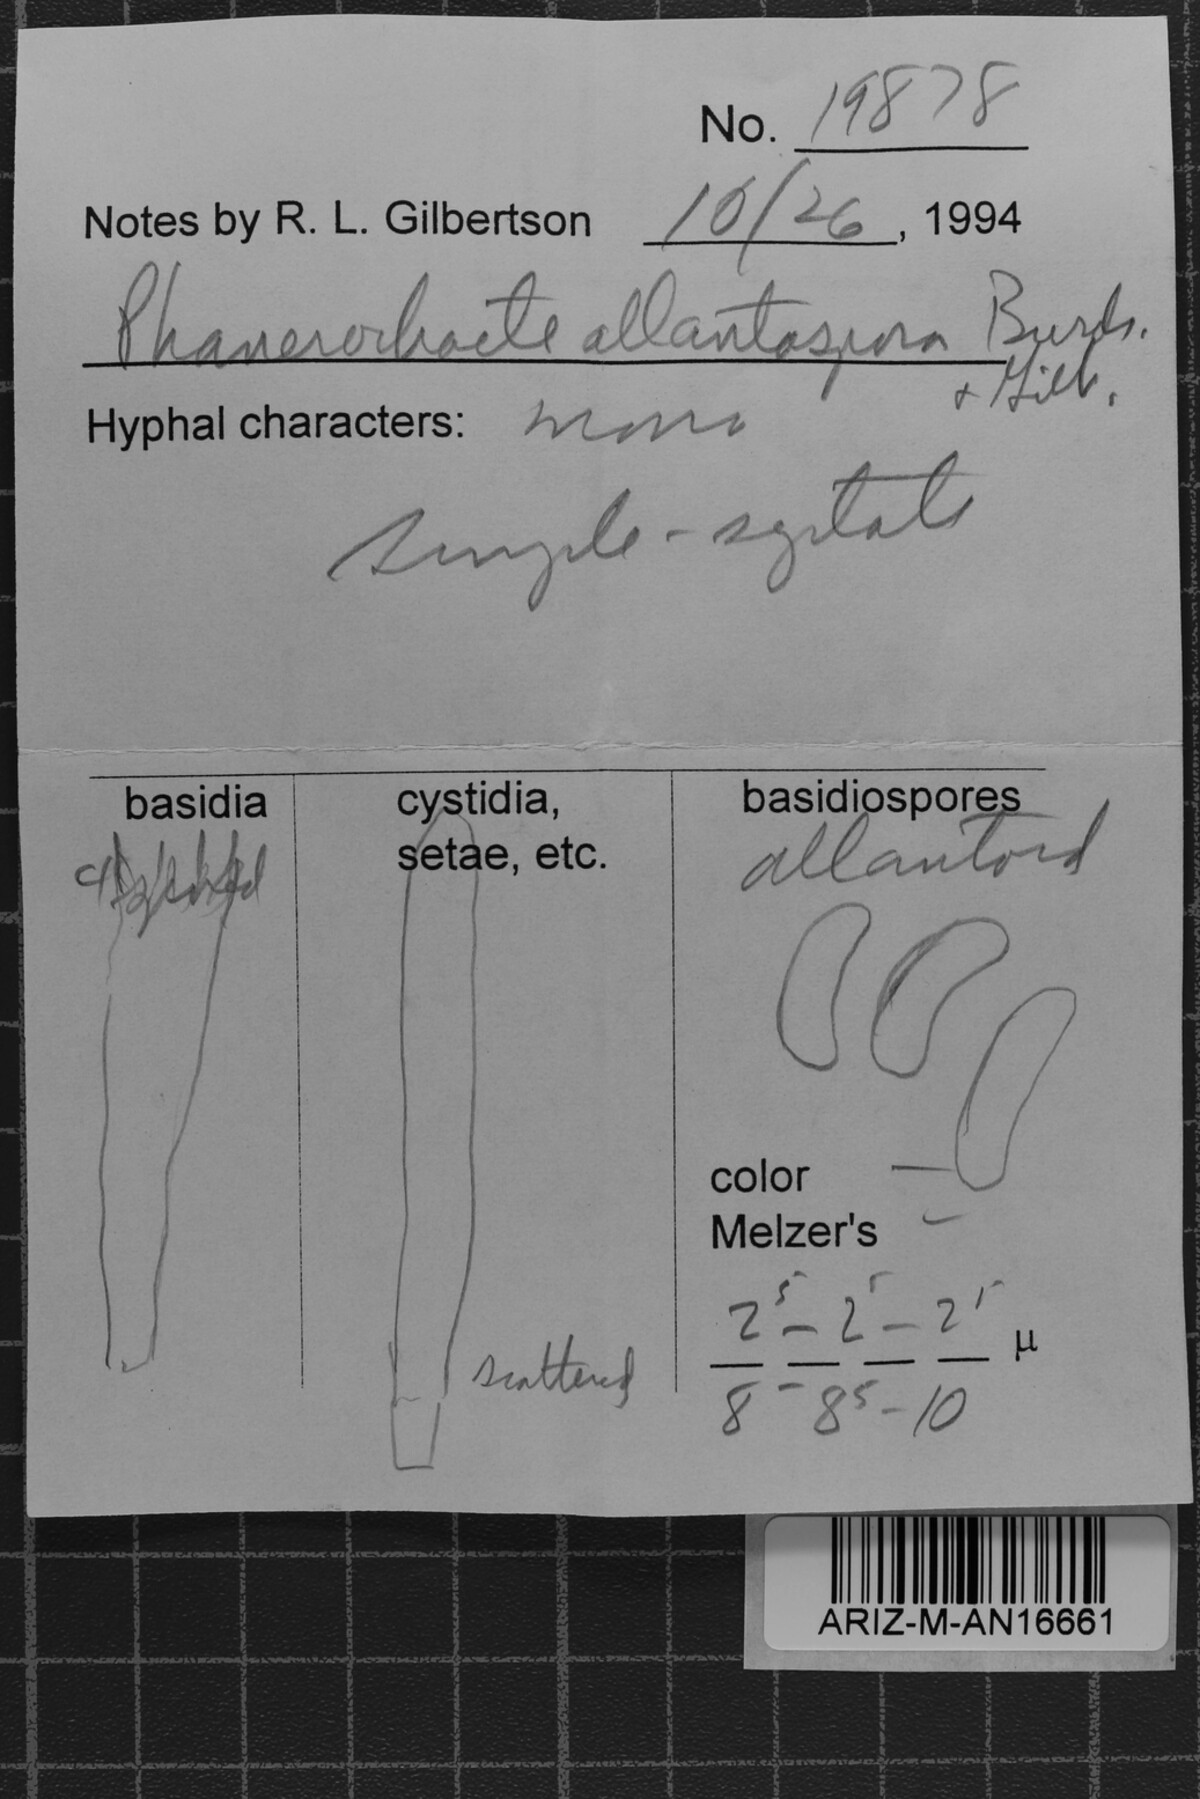 No. 19878
Notes by R. L. Gilbertson 10/26, 1994
Phanerochaete allantospora Burds.
+ Gilb.
Hyphal characters: mono
simple-septate
basidia
cystidia,
setae, etc.
basidiospores
allantoid
color —
Melzer's –
2⁵ – 2⁵ – 2⁵ µ
8 – 8⁵ – 10
scattered
ARIZ-M-AN16661